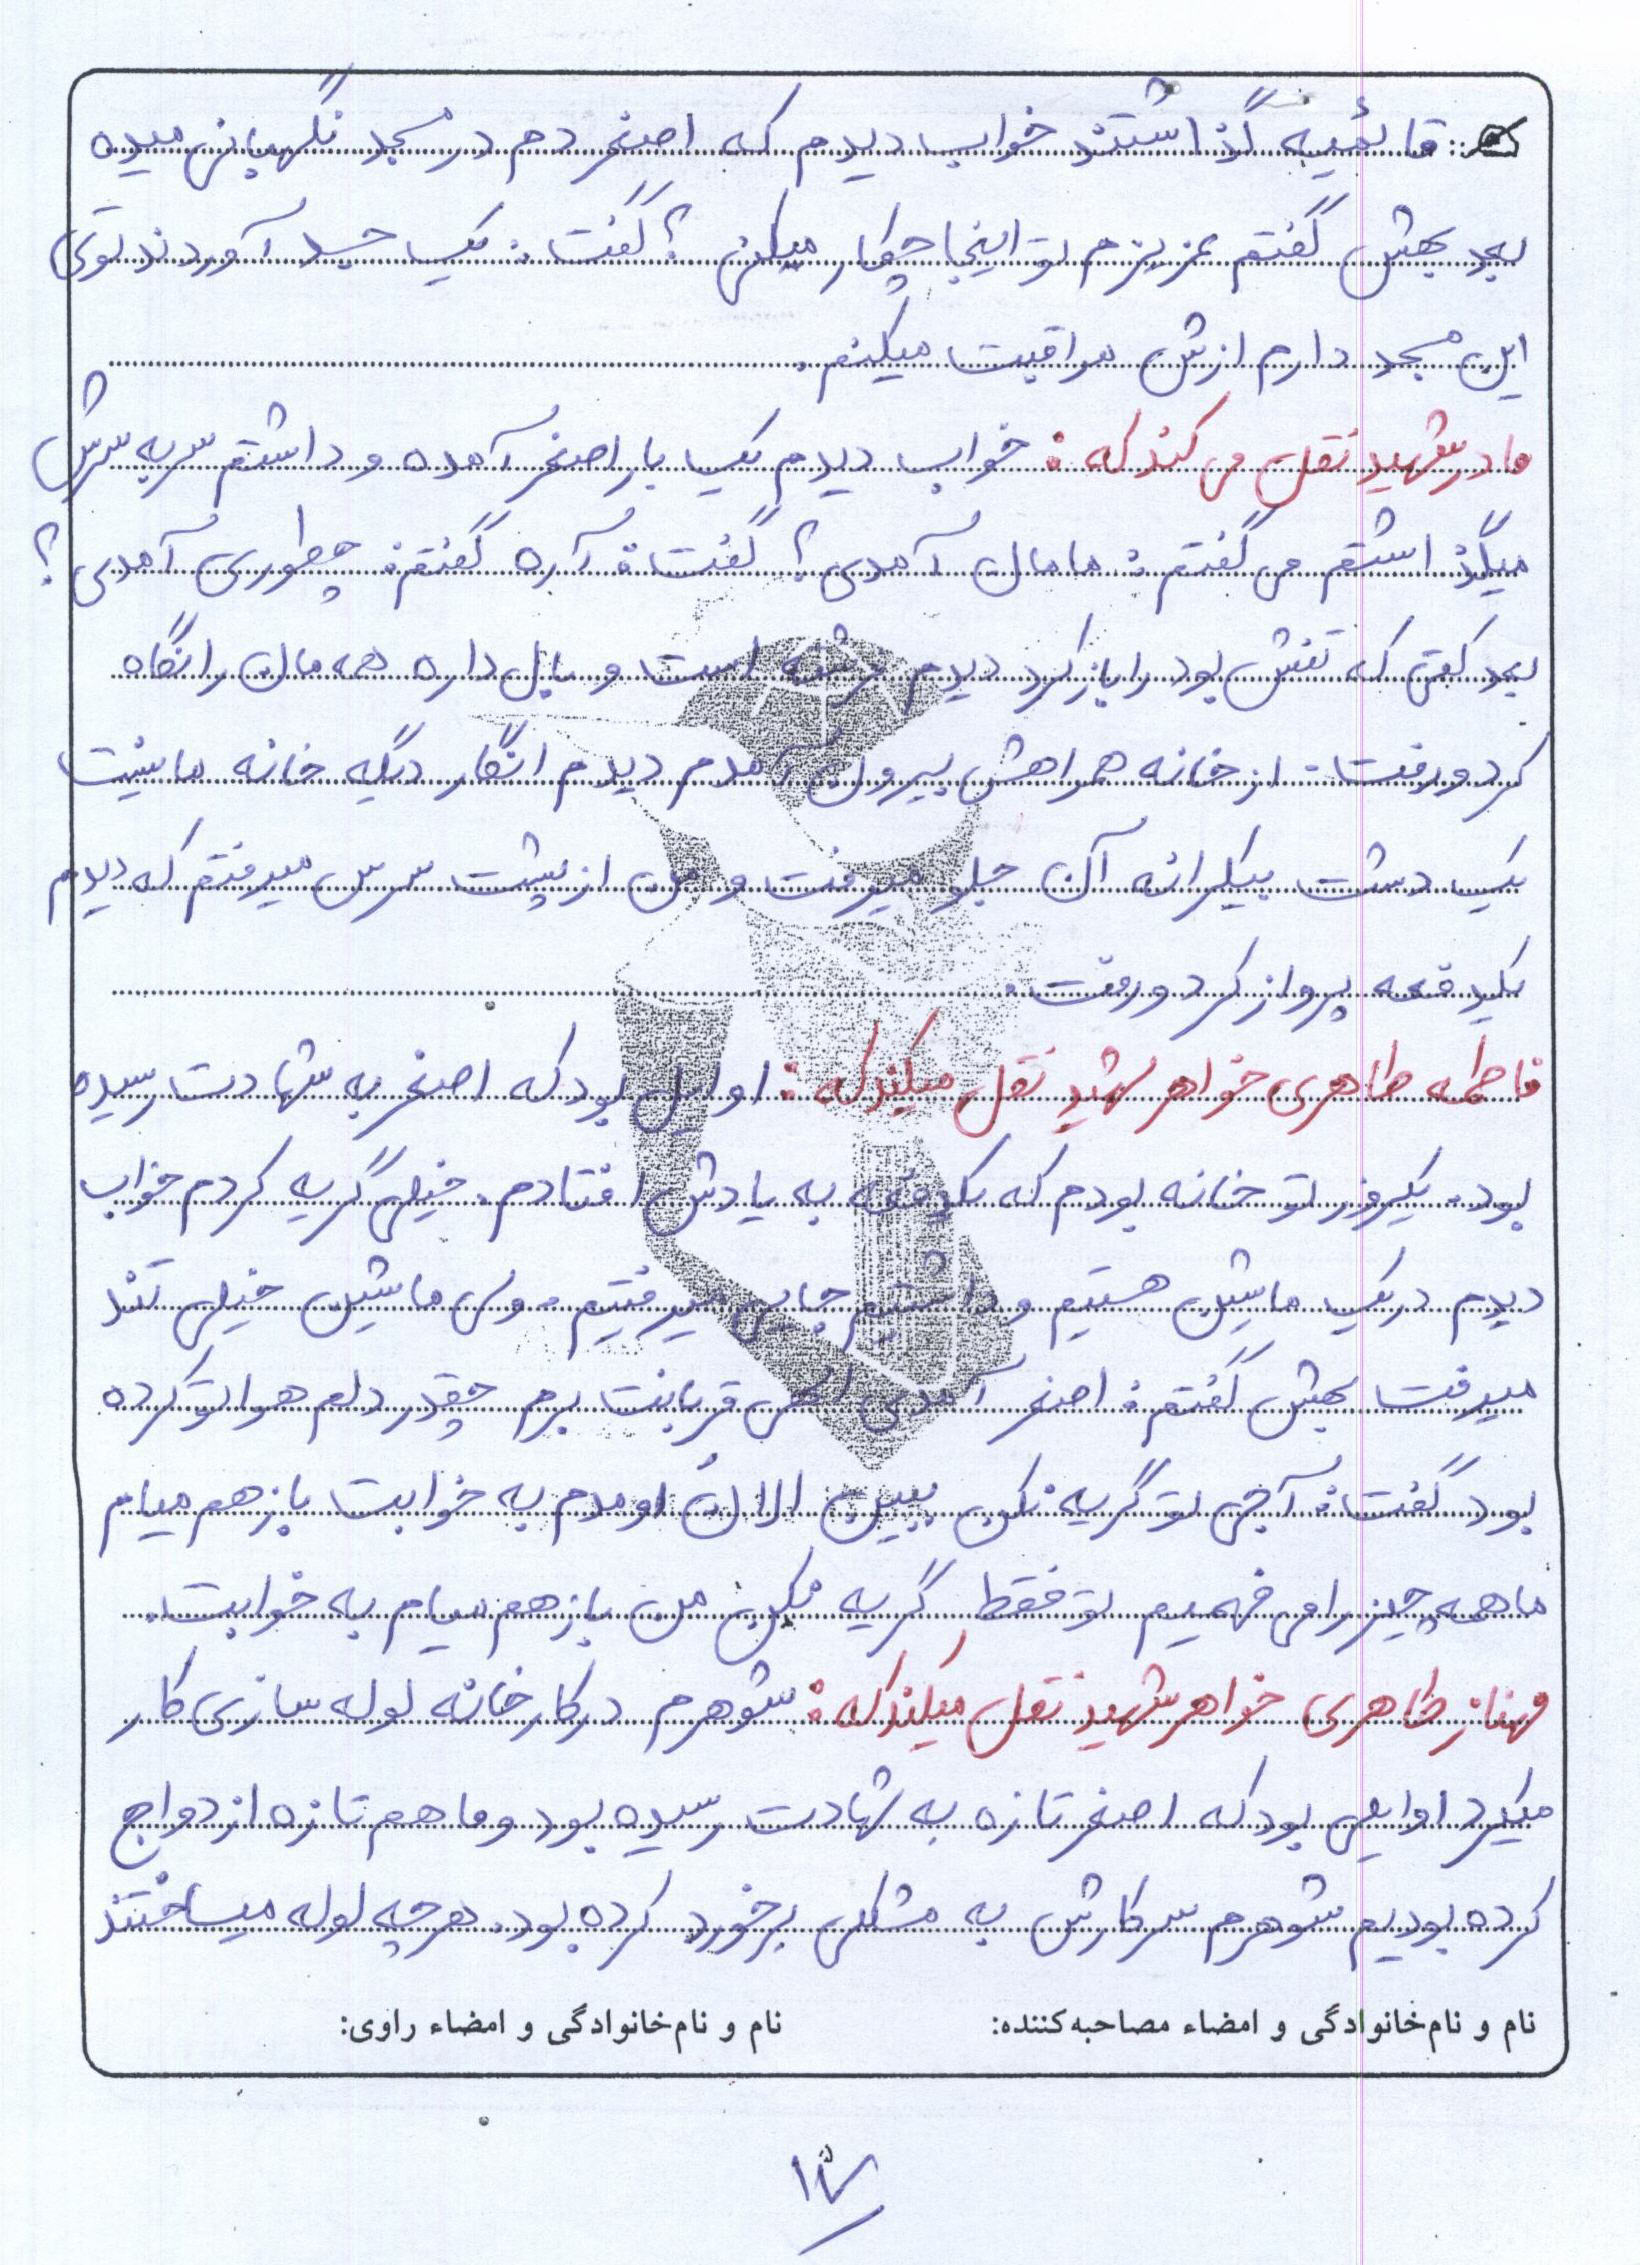 قائمیه گذاشتند خواب دیدم که اصغر دم در مسجد نگهبانی میده
بعد بهش گفتم عزیزم تو اینجا چکار میکنی؟ گفت: یک جسد آوردند توی
این مسجد دارم ازش مراقبت میکنم.
مادر شهید نقل می کند که: خواب دیدم یک بار اصغر آمده و داشتم سر به سرش
میگذاشتم می گفتم: مامان آمدی؟ گفت: آره گفتم: چطوری آمدی؟
بعد کتی که تنش بود را باز کرد دیدم فرشته است و بال داره همه مان را نگاه
کرد و رفت. از خانه همراهش بیرون آمدم دیدم انگار دیگه خانه ما نیست
یک دشت بیکرانه آن جلو میرفت و من از پشت سرش میرفتم که دیدم
یکدفعه پرواز کرد و رفت.
فاطمه طاهری خواهر شهید نقل میکند که: اوایل بود که اصغر به شهادت رسیده
بود. یکروز تو خانه بودم که یکدفعه به یادش افتادم. خیلی گریه کردم خواب
دیدم در یک ماشین هستیم و داشتیم جایی میرفتیم. ولی ماشین خیلی تند
میرفت بهش گفتم: اصغر آمدی الهی قربانت برم چقدر دلم هواتو کرده
بود گفت: آجی تو گریه نکن ببین الان اومدم به خوابت بازهم میام
ما همه چیز را می فهمیم تو فقط گریه مکن من بازهم میام به خوابت.
مهناز طاهری خواهر شهید نقل میکند که: شوهرم در کارخانه لوله سازی کار
میکرد اوایلی بود که اصغر تازه به شهادت رسیده بود و ما هم تازه ازدواج
کرده بودیم شوهرم سر کارش به مشکلی برخورد کرده بود. هرچه لوله میساختند
نام و نام‌خانوادگی و امضاء مصاحبه‌کننده: نام و نام‌خانوادگی و امضاء راوی: